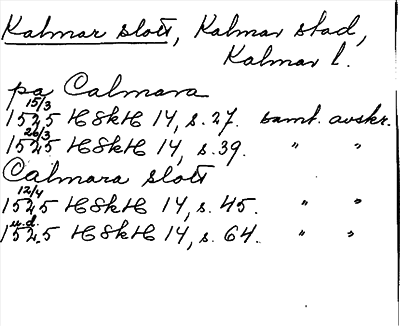 Kalmar slott, Kalmar stad,
Kalmar l.
pa Calmara
15/3
1525 HSkH 14, s. 27. samt. avskr.
26/3
1525 HSkH 14, s. 39. " "
Calmara slott
12/4
1525 HSkH 14, s. 45. " "
u.d.
1525 HSkH 14, s. 64. " "